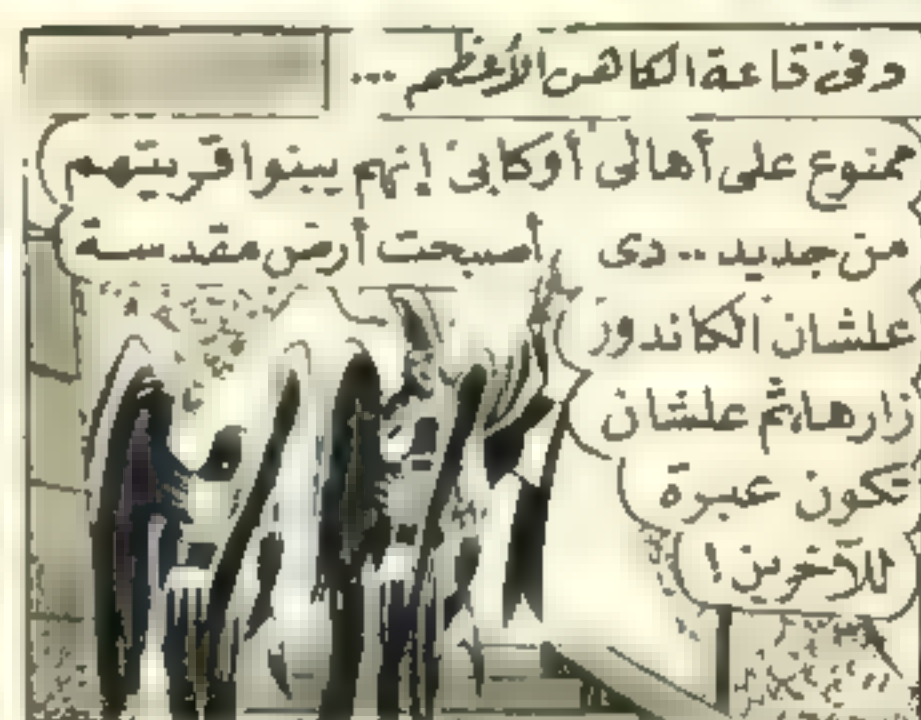 وفى قاعة الكاهن الأعظم ...
ممنوع على أهالى أوكابى إنهم يبنوا قريتهم
من جديد .. دى أصبحت أرض مقدسة
علشان الكاندور
زارها، ثم علشان
تكون عبرة
للآخرين !